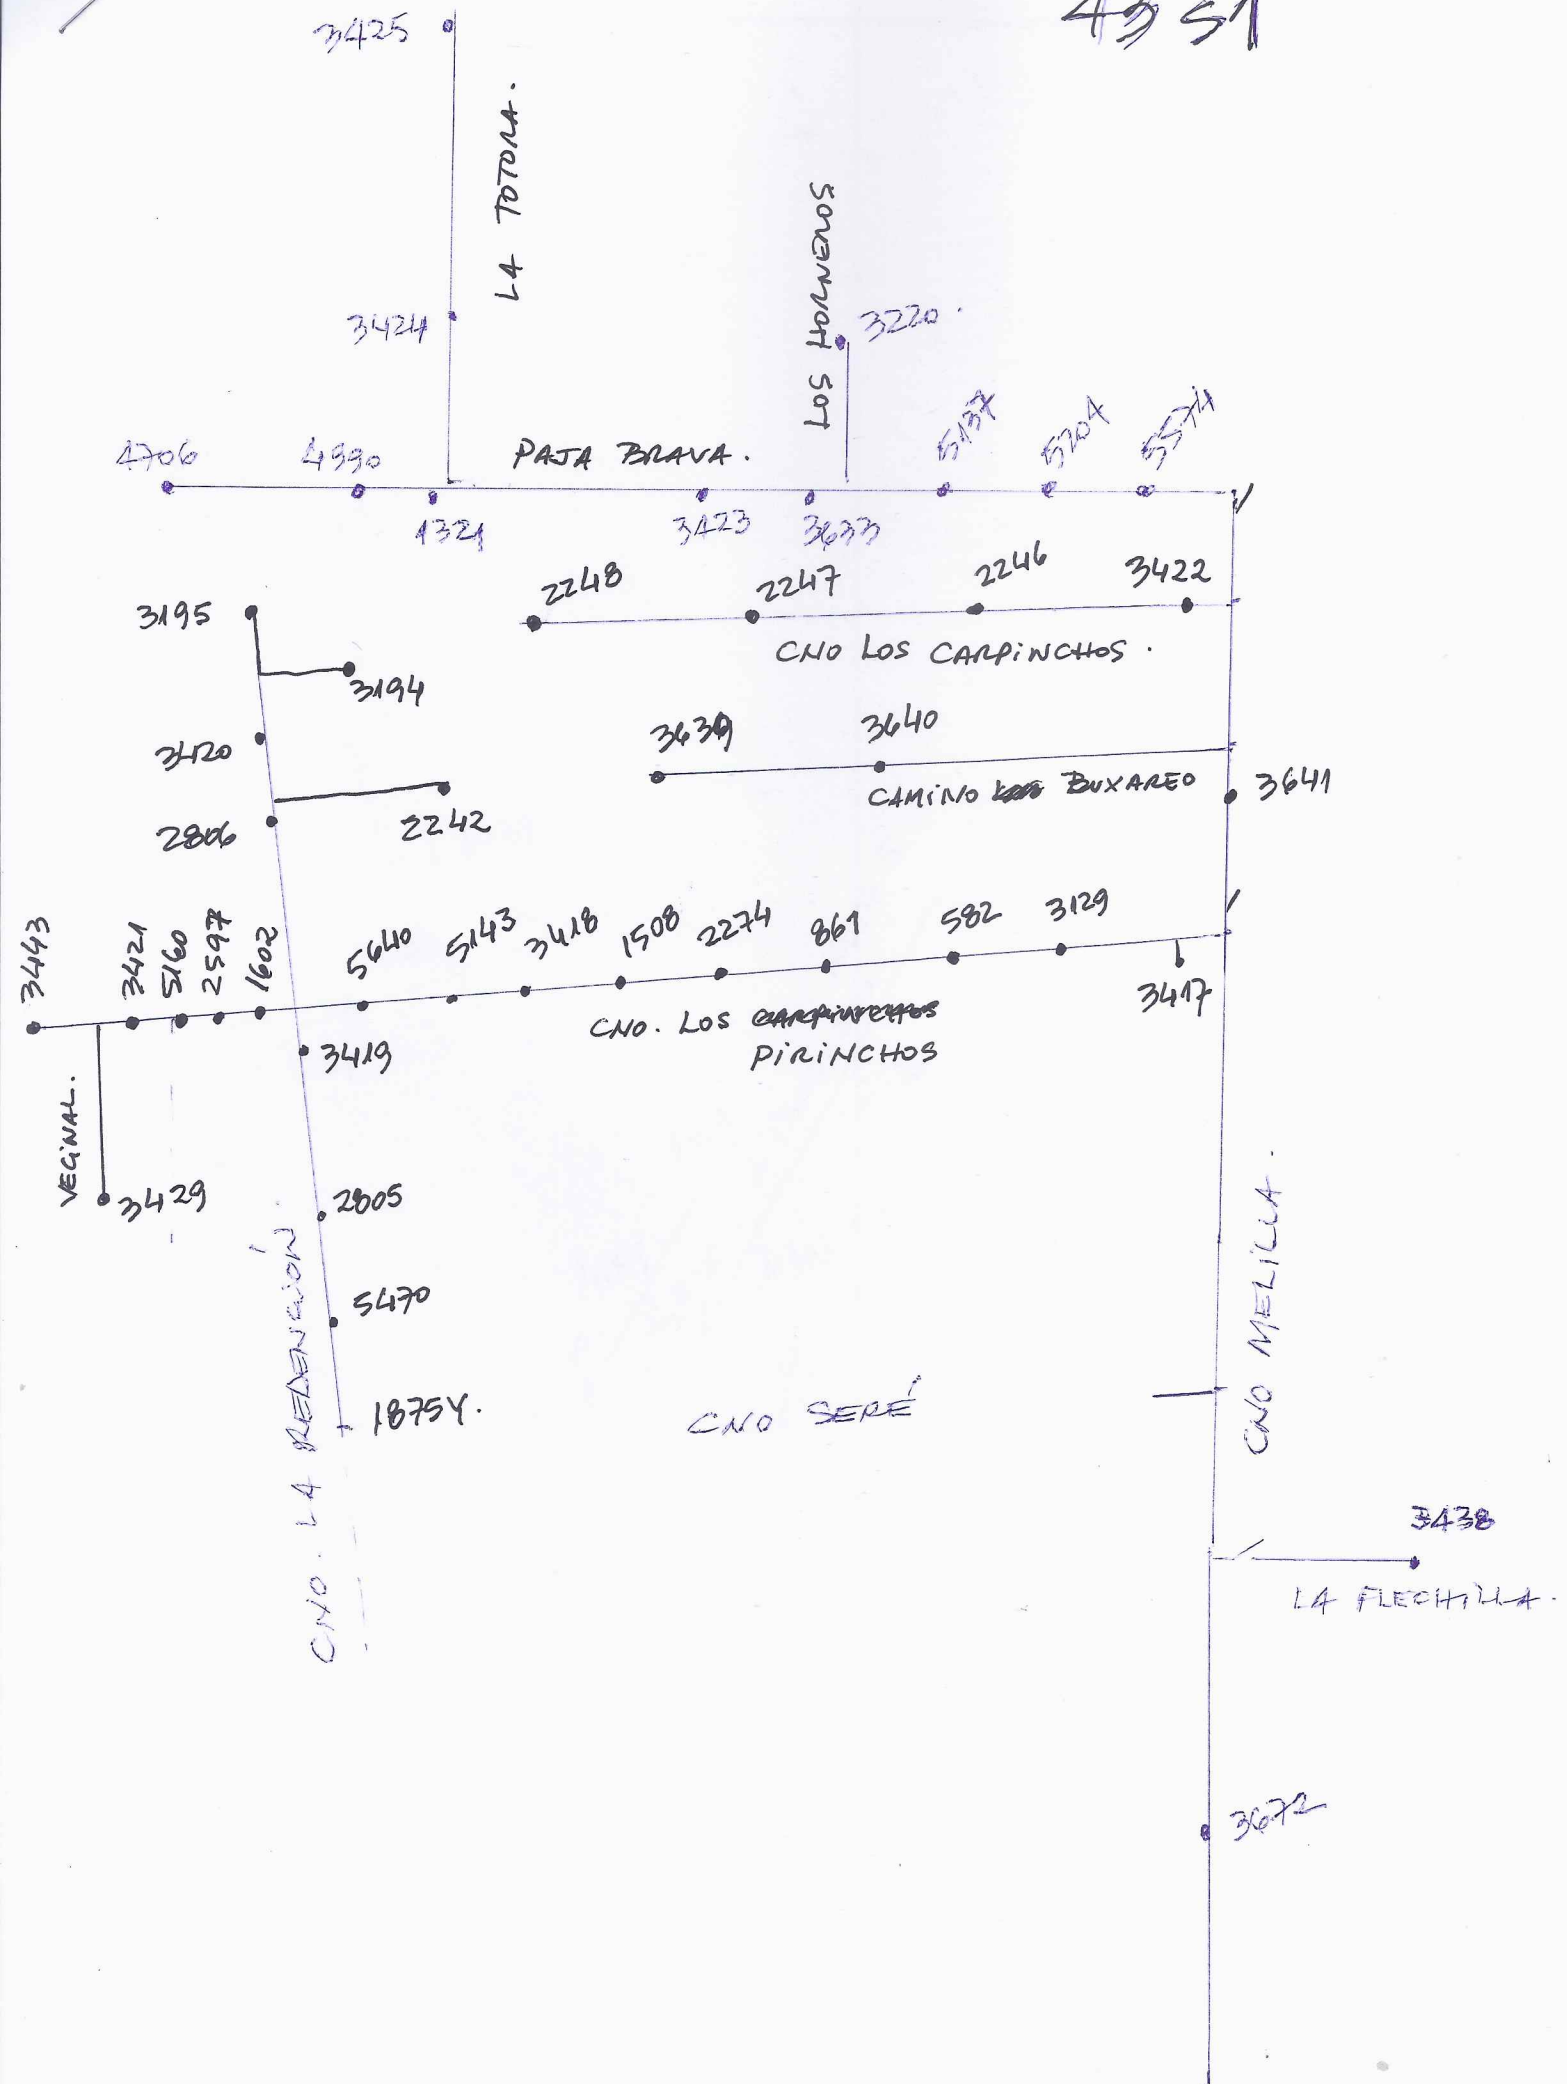 4351
3425
LA TOTORA.
3424
LOS HORNEROS
3220.
4706
4990
PAJA BRAVA.
5137
5204
5574
1321
3423
3633
2248
2247
2246
3422
3195
CNO LOS CARPiNCHOS.
3194
3639
3640
3420
CAMiNO BUXAREO
3641
2806
2242
3443
3421
5160
2597
1602
5640
5143
3418
1508
2274
861
582
3129
3417
CNO. LOS
PiRiNCHOS
3419
VECiNAL.
3429
2805
5470
CNO. LA REDENCiÓN.
1875Y.
CNO SERÉ
CNO MELiLLA.
3438
LA FLECHiLLA.
3672